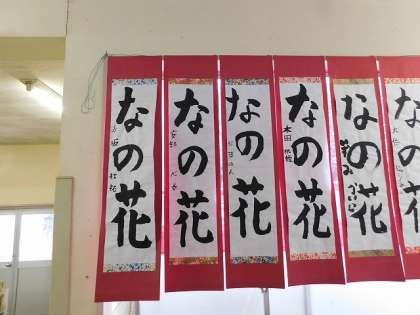 なの花
なの花
なの花
なの花
なの花
なの花